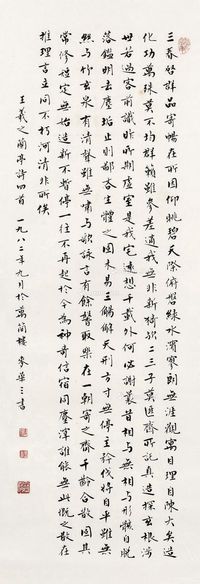 三春啟群品寄暢在所因仰眺碧天際俯磐綠水濱寥朗無涯觀寓目理自陳大矣造
化功萬殊莫不均群籟雖參差適我無非新猗歟二三子莫匪齊所託真造探玄根涉
世若過客前識非所期虛室是我宅遠想千載外何必謝曩昔相與無相與形骸自脫
落鑑明去塵垢止則鄙吝生體之固未易三觴解天刑方寸無停主矜伐將自平雖無
絲與竹玄泉有清聲雖無嘯與歌詠言有餘馨取樂在一朝寄之齊千齡合散固其
常修短定無始造新不暫停一往不再起於今為神奇信宿同塵滓誰能無此慨之散在
推理言立同不朽河清非所俟
王羲之蘭亭詩四首 一九八二年九月於萬蘭樓 麥華三書